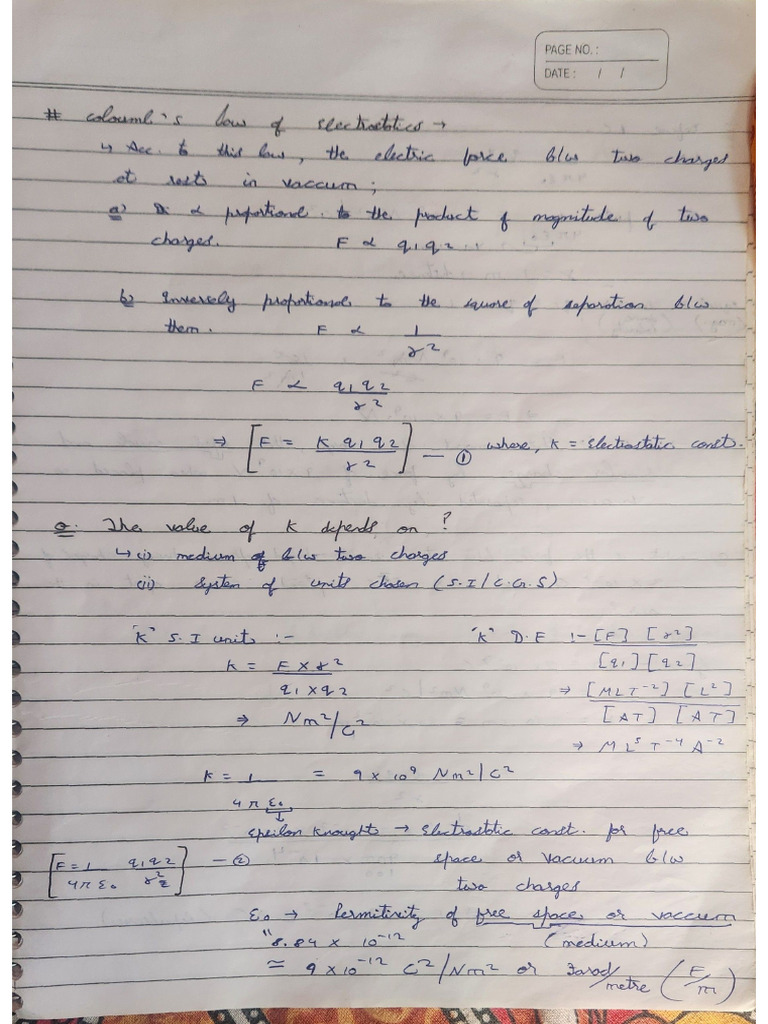 PAGE NO. :
DATE : / /
# Coloumb's law of Electrostatics →
↳ Acc. to this law, the electric force b/w two charges
at rests in vaccum ;
a) Di ∝ proportional to the product of magnitude of two
charges. F ∝ q1 q2
b) Inversely proportional to the square of separation b/w
them. F ∝ 1/r²
F ∝ q1 q2/r²
⇒ [F = K q1 q2/r²] — ① where, K = Electrostatic const.
Q. The value of K depends on ?
↳ (i) medium of b/w two charges
(ii) System of units chosen (S.I / C.G.S)
"K" S.I units :- "K" D.F :- [F] [r²]/[q1] [q2]
K = F × r²/q1 × q2
⇒ [MLT⁻²] [L²]/[AT] [AT]
⇒ Nm²/C²
⇒ ML⁵T⁻⁴A⁻²
K = 1/4πε₀ = 9 × 10⁹ Nm²/C²
epsilon knought → Electrostatic const. for free
space or vacuum b/w
two charges
[F = 1/4πε₀ q1q2/r²] — ②
ε₀ → Permitivity of free space or vaccum
(medium)
"8.84 × 10⁻¹²
≃ 9 × 10⁻¹² C²/Nm² or Farad/metre (F/m)